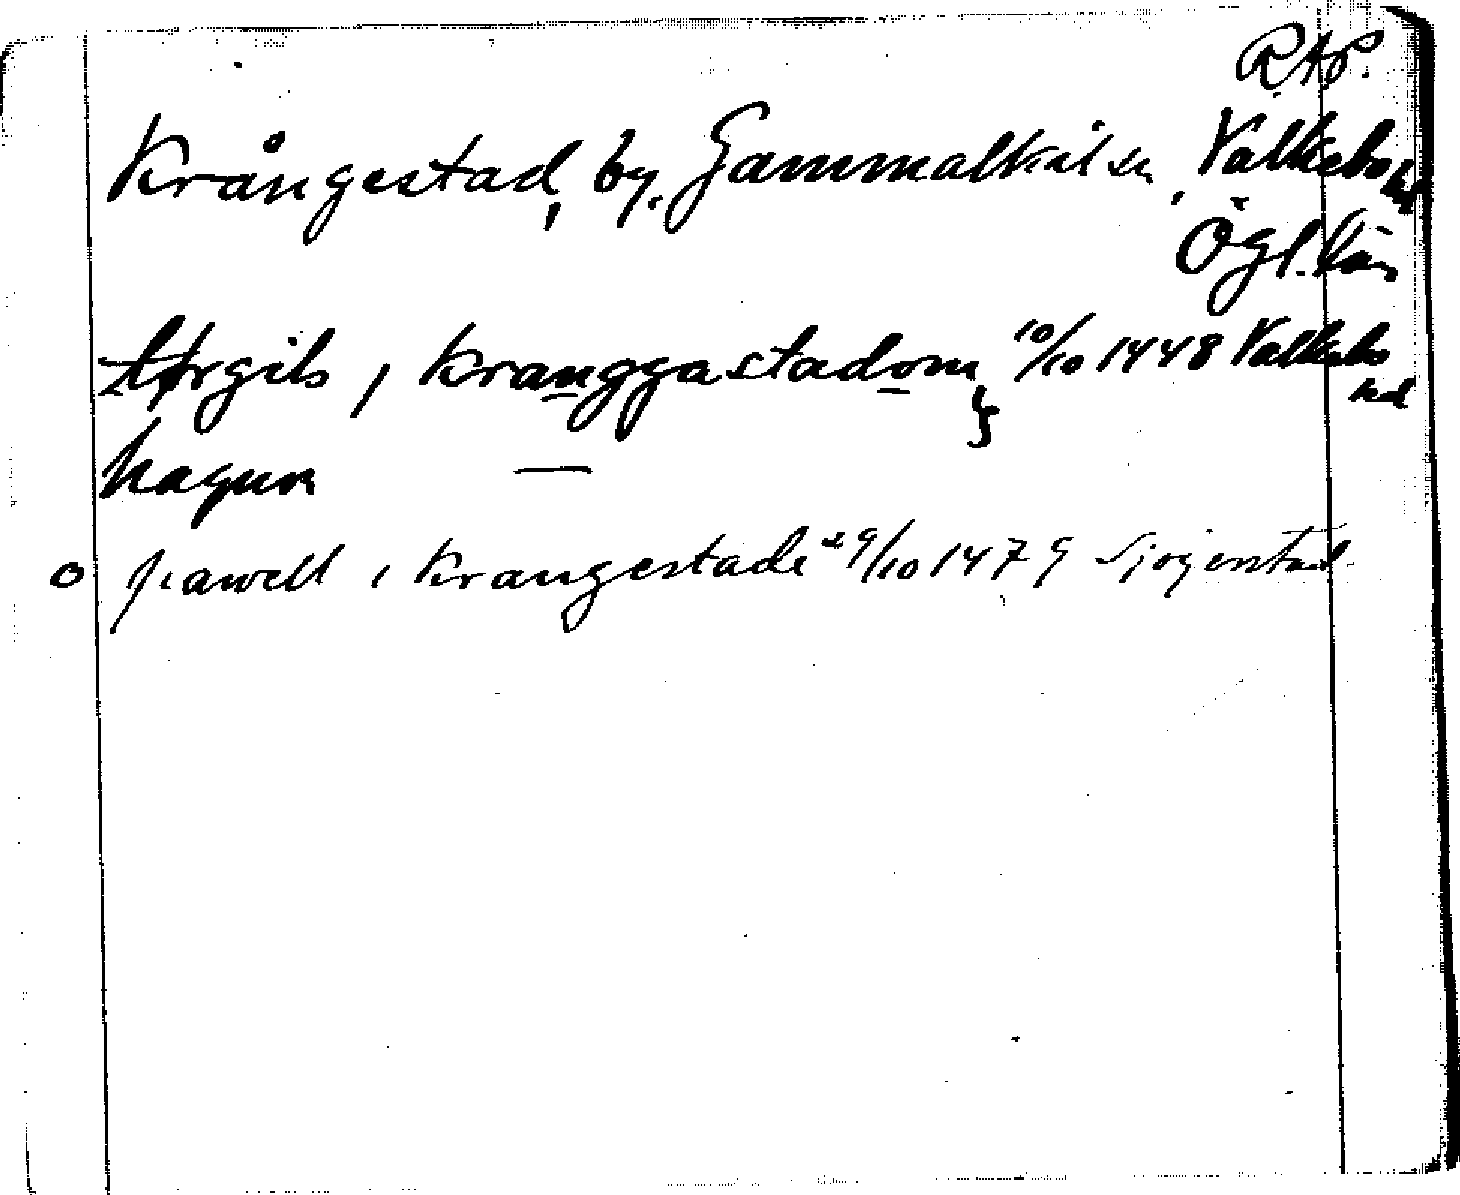 RAP.
Krångestad, by. Gammalkil sn, Valkebo hd
Ögl. län
thrgils i kranggastadom 10/10 1448 Valkebo hd
haqun —
o pawell i krangestade 29/10 1479 Sjögestad